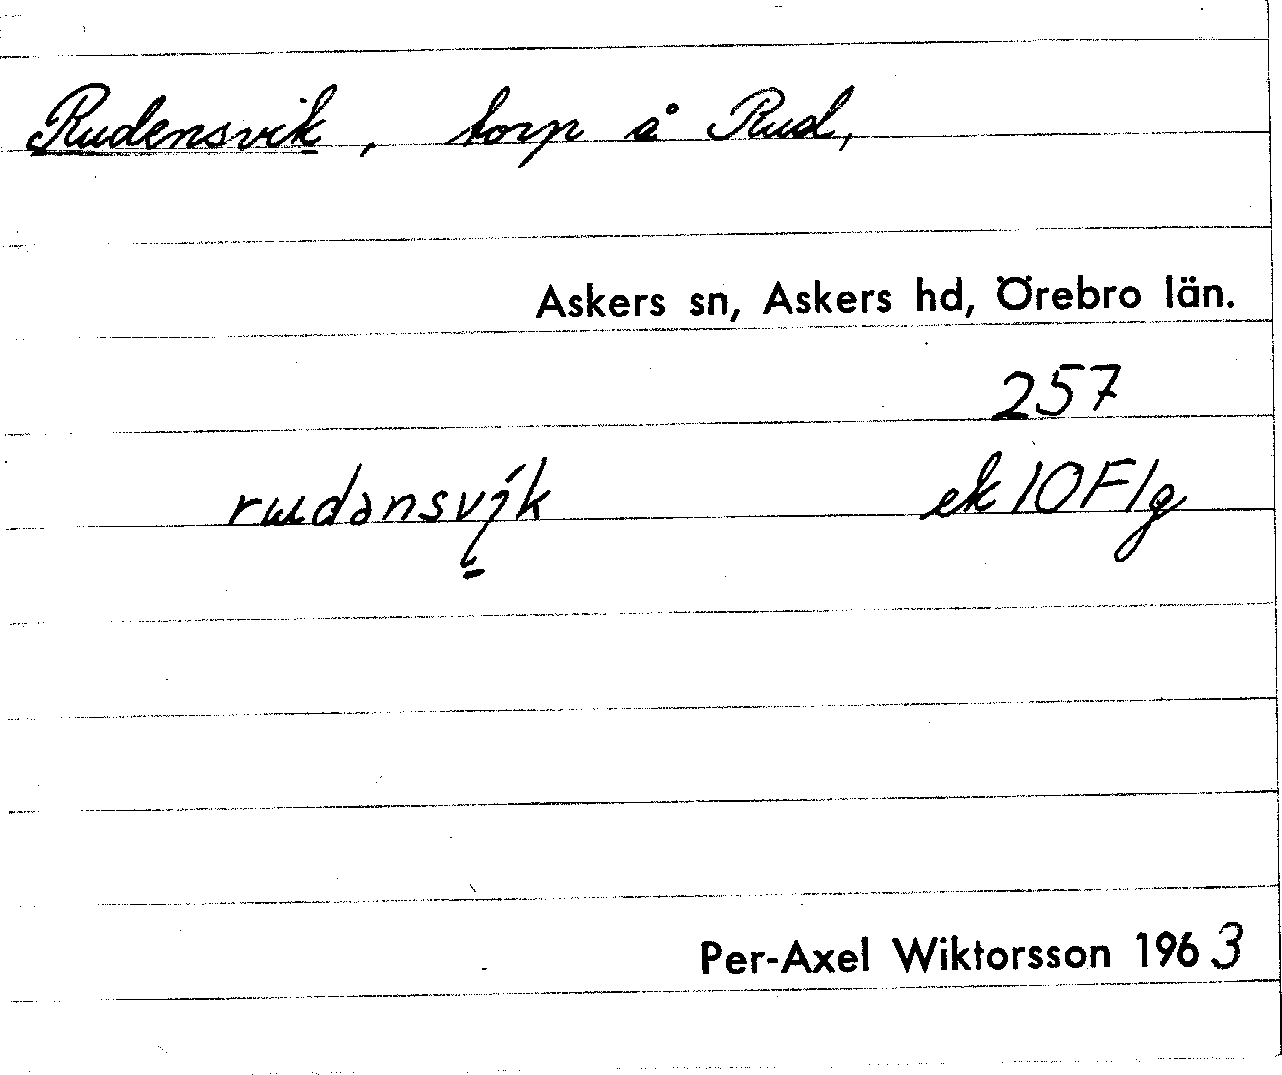 Rudensvik, torp å Rud,
Askers sn, Askers hd, Örebro län.
257
rɯdənsvı̨́k ek 10F1g
Per-Axel Wiktorsson 1963